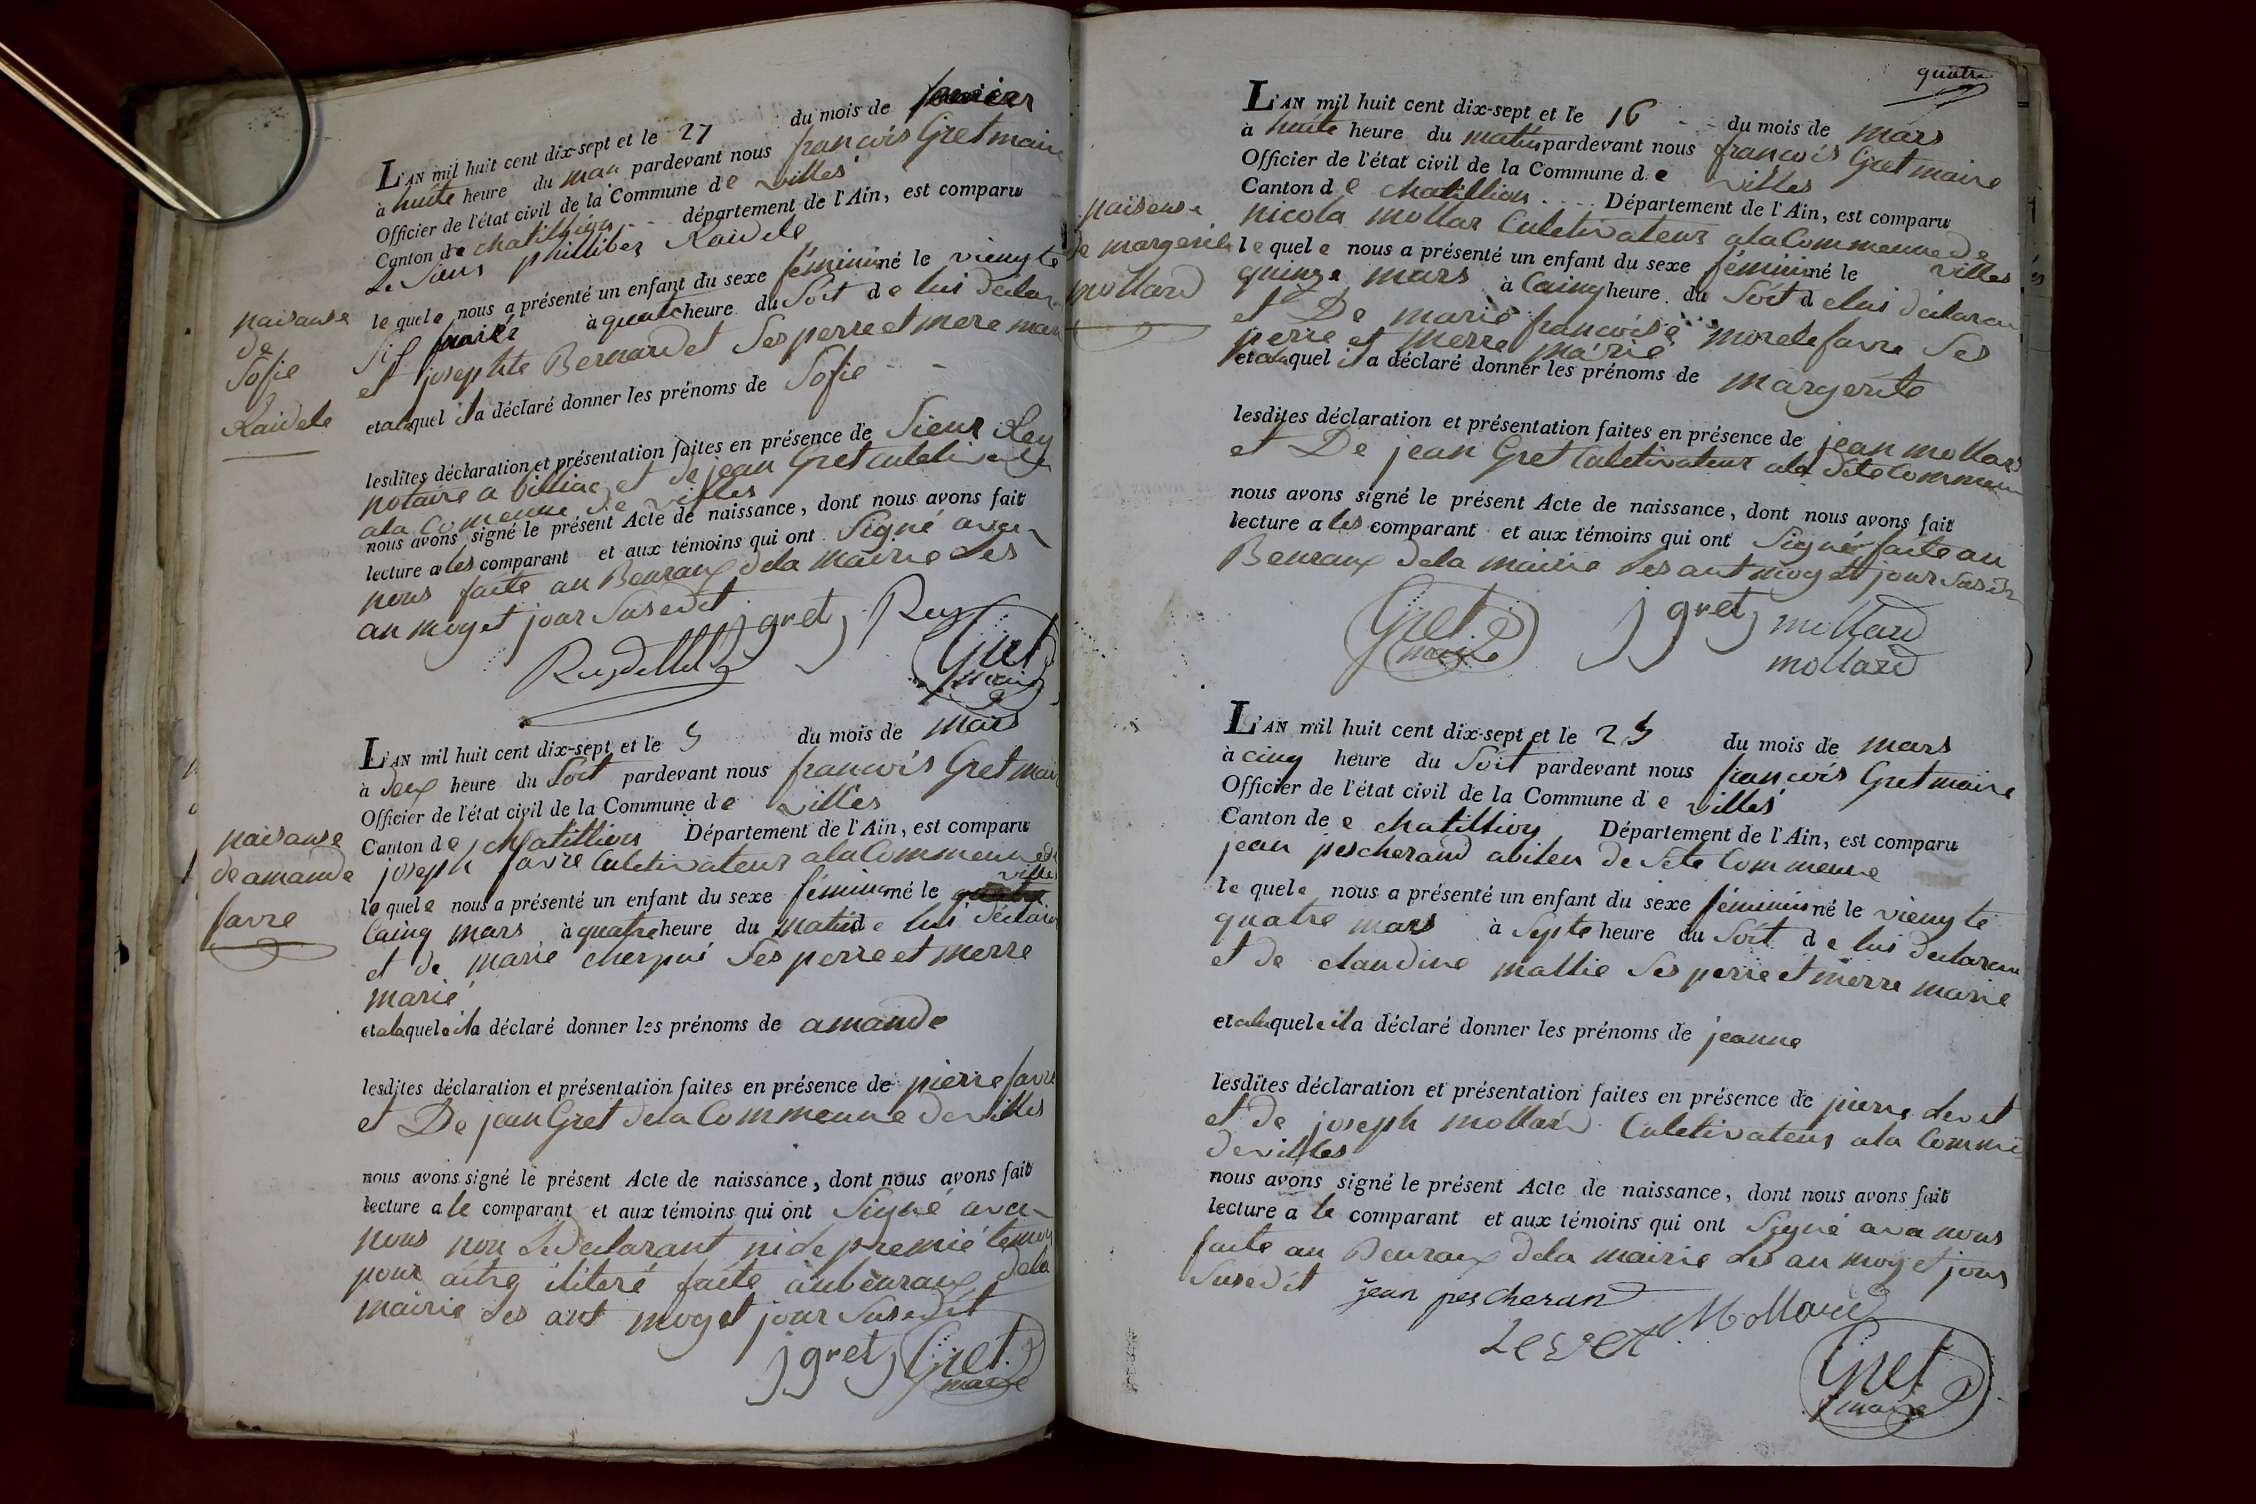 L'AN mil huit cent dix-sept et le 27 du mois de
à huite heure du pardevant nous francois Gret maire
Officier de l'état civil de la Commune de villes
Canton de chatillion département de l'Ain, est comparu
Le Sieur philliber Raidele
lequele nous a présenté un enfant du sexe féminin né le vienyte
Sis à quatre heure du Soit de lui declaran
et josephte Bernardet Ses perre et mere
et alaquel il a déclaré donner les prénoms de Sofie
lesdites déclaration et présentation faites en présence de Sieur Rey
notaire a billiac et de jean Gret culetivateur
ala Comenne de villes
nous avons signé le présent Acte de naissance, dont nous avons fait
lecture a les comparant et aux témoins qui ont Signé avec
nous faite au Beuraux dela mairie Les
an moy et jour Susedit
j gret j Rey
Reydellet
Gret
maire
naisanse
de
Sofie
Raidele
L'AN mil huit cent dix-sept et le 5 du mois de mars
à deux heure du Soit pardevant nous francois Gret maire
Officier de l'état civil de la Commune de villes
Canton de chatillion Département de l'Ain, est comparu
joseph favre Culetivateur ala Commenne de
villes
lequele nous a présenté un enfant du sexe féminin né le quatre
Cainq mars à quatre heure du matin de lui déclaran
et de marie cherpui Ses perre et merre
marié
et alaquele il a déclaré donner les prénoms de amande
lesdites déclaration et présentation faites en présence de pierre favre
et De jean Gret dela Commenne de villes
nous avons signé le présent Acte de naissance, dont nous avons fait
lecture a le comparant et aux témoins qui ont Signé avec
nous non Le declarant ni de premié temoin
pour aitre iliteré faite au beuraux dela
mairie Les ant moy et jour Susedit
j gret j Gret
maire
naisanse
de amande
favre
quatre
L'AN mil huit cent dix-sept et le 16 du mois de mars
à huite heure du matin pardevant nous francois Gret maire
Officier de l'état civil de la Commune de villes
Canton de chatillion Département de l'Ain, est comparu
nicola mollar Culetivateur ala Commenne de
villes
lequele nous a présenté un enfant du sexe féminin né le
quinze mars à Cainq heure du Soit de lui déclaran
et De marie francoise morele favre Ses
perre et merre marié
et alaquel il a déclaré donner les prénoms de margerite
lesdites déclaration et présentation faites en présence de jean mollard
et De jean Gret Culetivateur ala dete Commenne
nous avons signé le présent Acte de naissance, dont nous avons fait
lecture a les comparant et aux témoins qui ont Signé faite au
Beuraux dela mairie Les ant moy et jour Susedit
Gret
maire
j gret j mollard
mollard
naisense
de margerite
mollard
L'AN mil huit cent dix-sept et le 25 du mois de mars
à cinq heure du Soit pardevant nous francois Gret maire
Officier de l'état civil de la Commune de villes
Canton de e chatillion Département de l'Ain, est comparu
jean pescherand abiten de Sete Commenne
lequele nous a présenté un enfant du sexe féminin né le vienyte
quatre mars à Septe heure du Soit de lui declaran
et de claudine mallie Ses perre et merre marié
et alaquele il a déclaré donner les prénoms de jeanne
lesdites déclaration et présentation faites en présence de pierre Levet
et de joseph mollard Culetivateur ala Comme
de villes
nous avons signé le présent Acte de naissance, dont nous avons fait
lecture a le comparant et aux témoins qui ont Signé avec nous
faite au Beuraux dela mairie Les an moy et jour
Susedit jean pescherand
Levet Mollard
Gret
maire